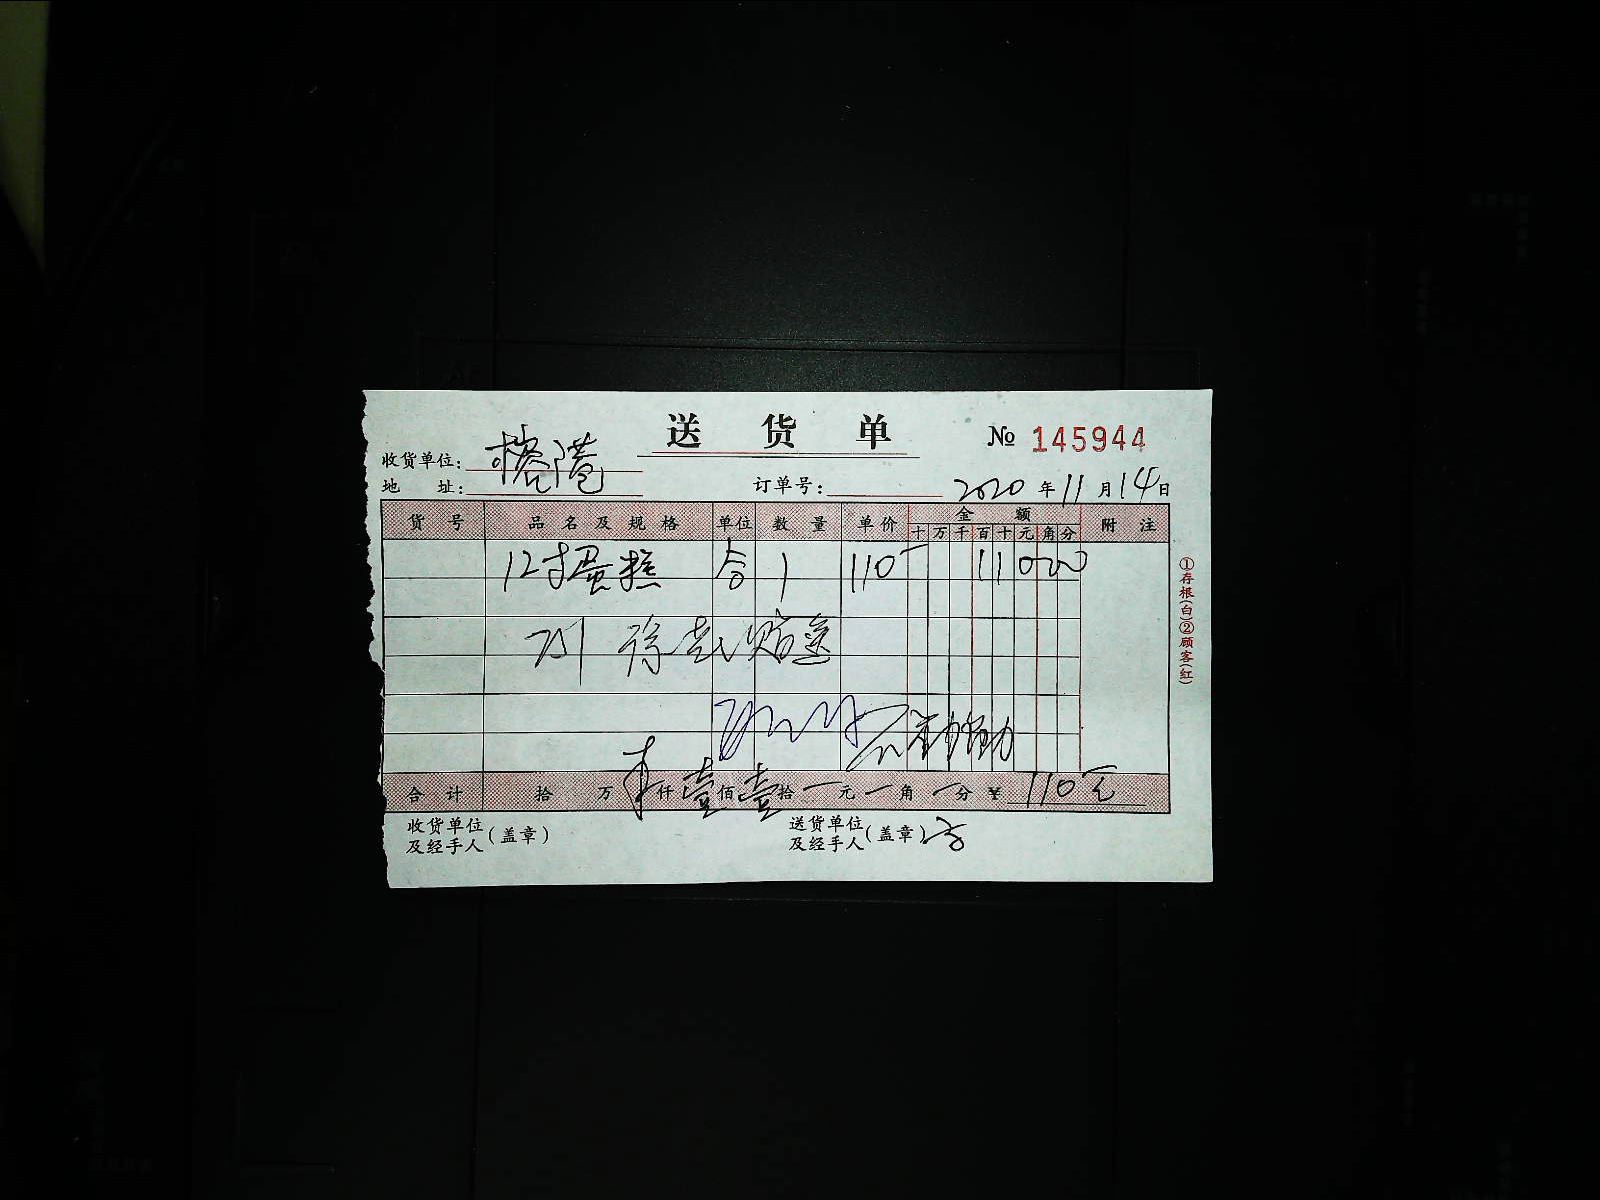 送货单
№ 145944
收货单位:
地 址: 订单号: 2020 年 11 月 14 日
货号 品名及规格 单位 数量 单价 金额 附注
十 万 千 百 十 元 角 分
12寸蛋糕 台 1 110 11000
751 徐总贴金
合计 拾 万 仟 壹 佰 壹 拾 一 元 一 角 一 分 ¥ 110元
收货单位及经手人(盖章) 送货单位及经手人(盖章)
①存根(白)②顾客(红)